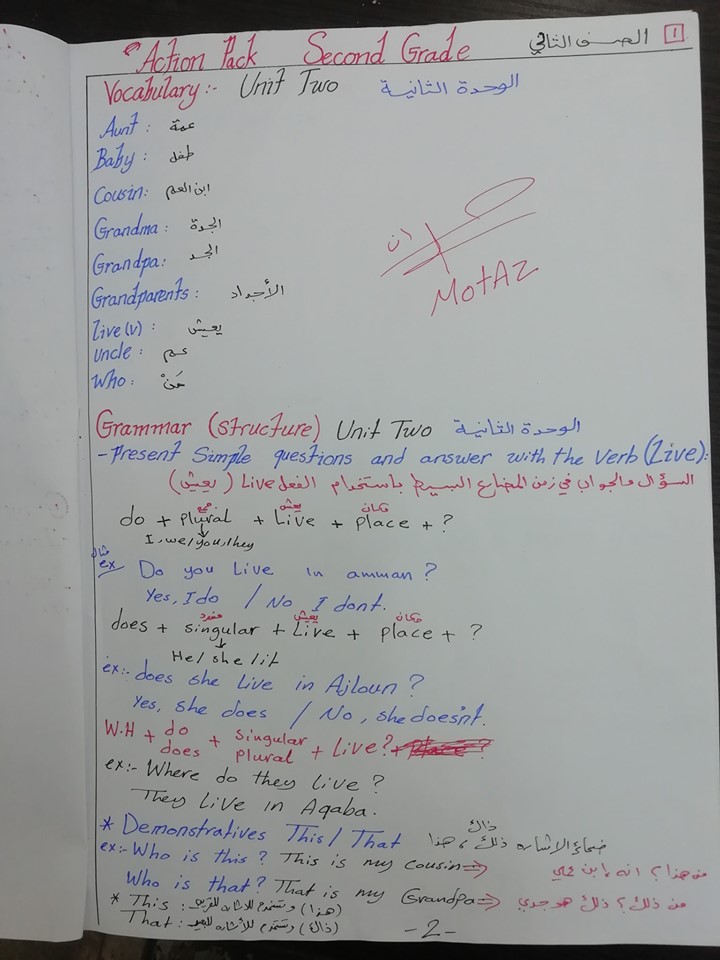 الصف الثاني 1
Action Pack Second Grade
Vocabulary :- Unit Two الوحدة الثانية
Aunt : عمة
Baby : طفل
Cousin: ابن العم
Grandma : الجدة
Grandpa: الجد
Grandparents : الأجداد
Live(v) : يعيش
Uncle : عم
Who : مَنْ
ان
MotAZ
Grammar (structure) Unit Two الوحدة الثانية
- Present Simple questions and answer with the verb (Live):
السؤال والجواب في زمن المضارع البسيط باستخدام الفعل Live (يعيش)
جمع يعيش مكان
do + plural + Live + place + ?
I, we/you/they
مثال
ex Do you Live in amman ?
Yes, I do / No, I dont.
مفرد يعيش مكان
does + singular + Live + place + ?
He/she/it
ex:- does she Live in Ajloun ?
Yes, she does / No, she doesn't.
W.H + do + singular + Live?
does plural
ex:- Where do they Live ?
They Live in Aqaba.
ذاك
* Demonstratives This / That ذلك ، هذا الاشاره
ex:- Who is this ? This is my cousin⇒ من هذا ؟ انه ابن عمي
Who is that? That is my Grandpa⇒ من ذلك ؟ ذلك هو جدي
* This : (هذا) وتستخدم للاشاره للقريب
That : (ذاك) وتستخدم للأشاره للبعيد
-2-